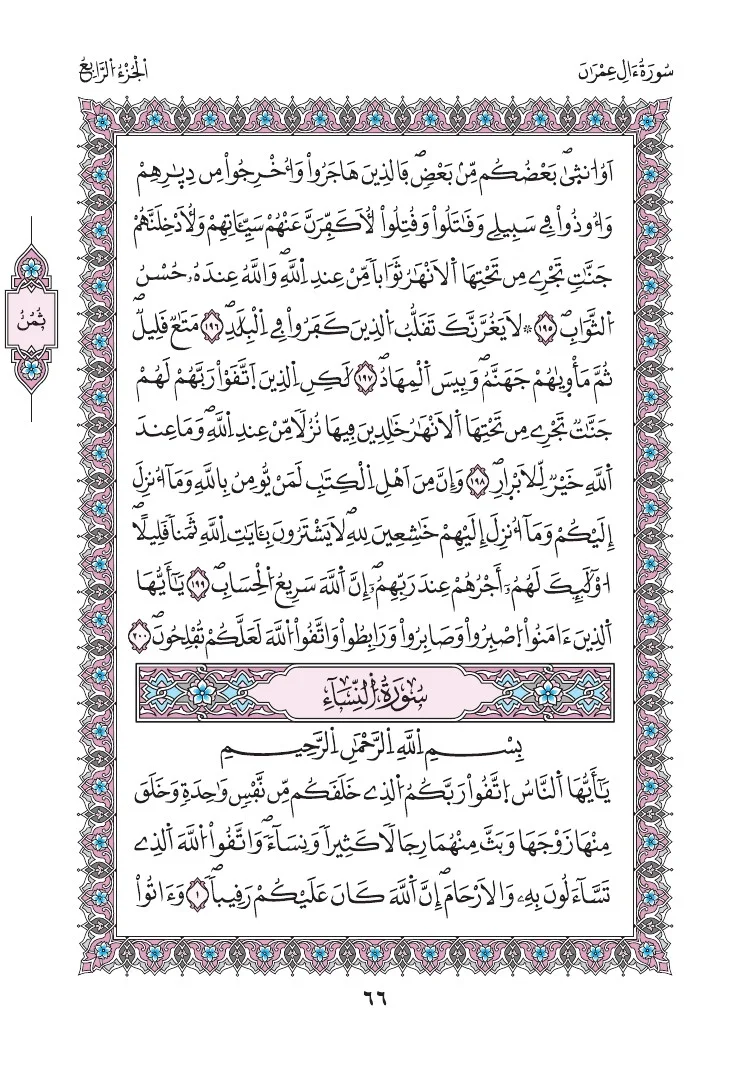 سُورَةُ ءَالِ عِمْرَٰنَ
اَ۬لْجُزْءُ اُ۬لرَّابِعُ
اَوُ ا۟نث۪يٰۖ بَعْضُكُم مِّنۢ بَعْضٖۖ فَالذِينَ هَاجَرُواْ وَأُخْرِجُواْ مِن دِيٰ۪رِهِمْ
وَأُوذُواْ فِے سَبِيلِے وَقَٰتَلُواْ وَقُتِلُواْ لَأُكَفِّرَنَّ عَنْهُمْ سَيِّـَٔاتِهِمْ وَلَأُدْخِلَنَّهُمْ
جَنَّٰتٖ تَجْرِے مِن تَحْتِهَا اَ۬لَانْهَٰرُ ثَوَاباٗ مِّنْ عِندِ اِ۬للَّهِۖ وَاللَّهُ عِندَهُۥ حُسْنُ
ثُمُنُ
اُ۬لثَّوَابِۖ ١٩٥ ۞ لَا يَغُرَّنَّكَ تَقَلُّبُ اُ۬لذِينَ كَفَرُواْ فِے اِ۬لْبِلَٰدِۖ ١٩٦ مَتَٰعٞ قَلِيلٞۖ
ثُمَّ مَأْو۪يٰهُمْ جَهَنَّمُۖ وَبِيسَ اَ۬لْمِهَادُۖ ١٩٧ لَٰكِنِ اِ۬لذِينَ اَ۪تَّقَوْاْ رَبَّهُمْ لَهُمْ
جَنَّٰتٞ تَجْرِے مِن تَحْتِهَا اَ۬لَانْهَٰرُ خَٰلِدِينَ فِيهَا نُزُلاٗ مِّنْ عِندِ اِ۬للَّهِۖ وَمَا عِندَ
اَ۬للَّهِ خَيْرٞ لِّلَابْر۪ارِۖ ١٩٨ وَإِنَّ مِنَ اَهْلِ اِ۬لْكِتَٰبِ لَمَنْ يُّومِنُ بِاللَّهِ وَمَآ أُنزِلَ
إِلَيْكُمْ وَمَآ أُنزِلَ إِلَيْهِمْ خَٰشِعِينَ لِلهِۖ لَا يَشْتَرُونَ بِـَٔايَٰتِ اِ۬للَّهِ ثَمَناٗ قَلِيلاًۖ
ا۟وْلَٰٓئِكَ لَهُمُۥٓ أَجْرُهُمْ عِندَ رَبِّهِمُۥٓۖ إِنَّ اَ۬للَّهَ سَرِيعُ اُ۬لْحِسَابِۖ ١٩٩ يَٰٓأَيُّهَا
اَ۬لذِينَ ءَامَنُواْ اُ۪صْبِرُواْ وَصَابِرُواْ وَرَابِطُواْ وَاتَّقُواْ اُ۬للَّهَ لَعَلَّكُمْ تُفْلِحُونَۖ ٢٠٠
سُورَةُ اُ۬لنِّسَآءِ
بِسْمِ اِ۬للَّهِ اِ۬لرَّحْمَٰنِ اِ۬لرَّحِيمِ
يَٰٓأَيُّهَا اَ۬لنَّاسُ اُ۪تَّقُواْ رَبَّكُمُ اُ۬لذِے خَلَقَكُم مِّن نَّفْسٖ وَٰحِدَةٖ وَخَلَقَ
مِنْهَا زَوْجَهَا وَبَثَّ مِنْهُمَا رِجَالاٗ كَثِيراٗ وَنِسَآءٗۖ وَاتَّقُواْ اُ۬للَّهَ اَ۬لذِے
تَسَّآءَلُونَ بِهِۦ وَالَارْحَامَۖ إِنَّ اَ۬للَّهَ كَانَ عَلَيْكُمْ رَقِيباٗۖ ١ وَءَاتُواْ
٦٦